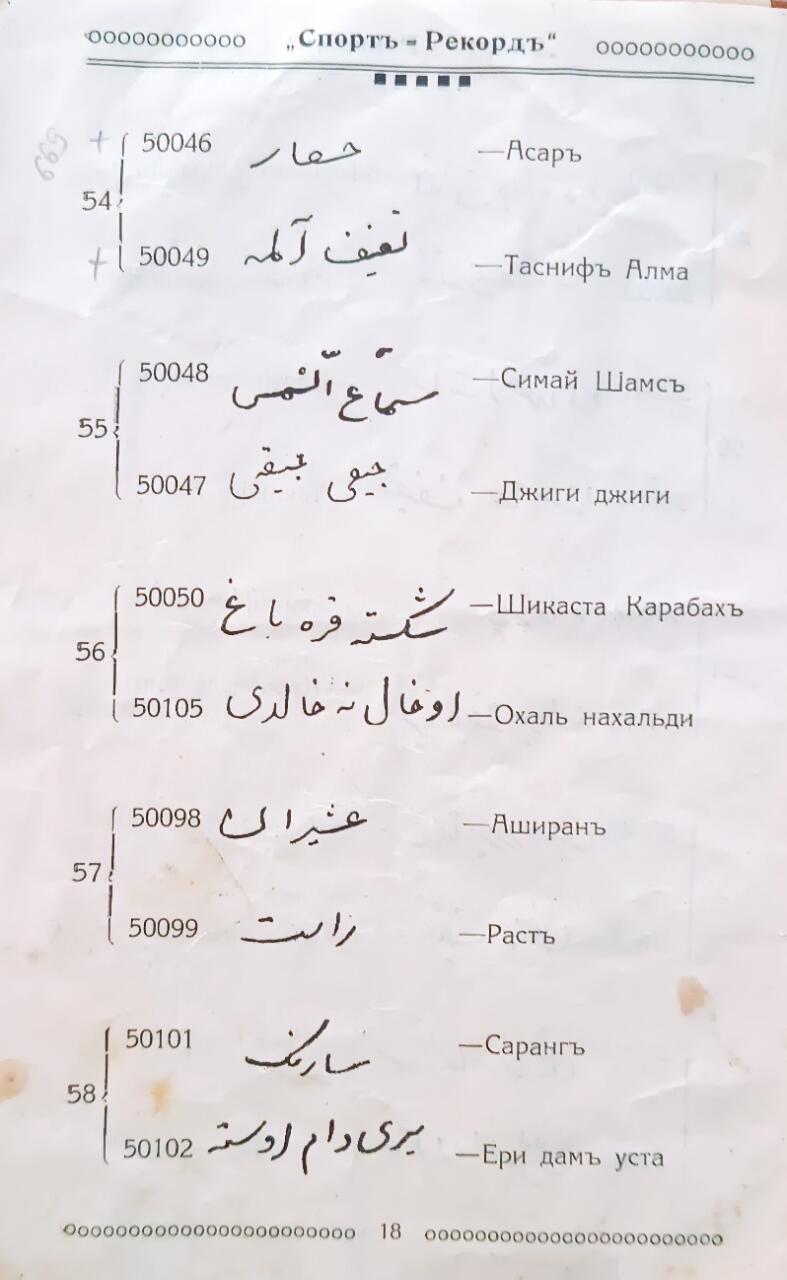 „Спортъ - Рекордъ“
599
50046 حصار —Асаръ
54
50049 تصنیف آلمه —Таснифъ Алма
50048 سماع الشمس —Симай Шамсъ
55
50047 جیقی جیقی —Джиги джиги
50050 شکسته قره باغ —Шикаста Карабахъ
56
50105 اوخال نه خالدی —Охаль нахальди
50098 عشیران —Аширанъ
57
50099 راست —Растъ
50101 سارنک —Сарангъ
58
50102 یری دام اوسته —Ери дамъ уста
18